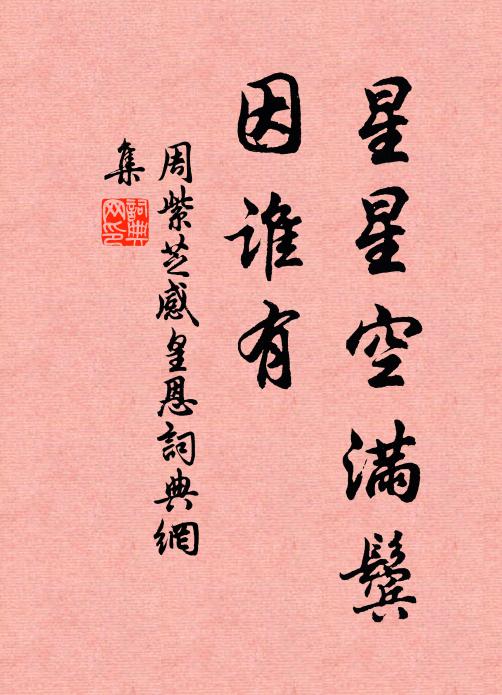 星星空满鬓
因谁有
周紫芝感皇恩詞典網
集
詞典网印